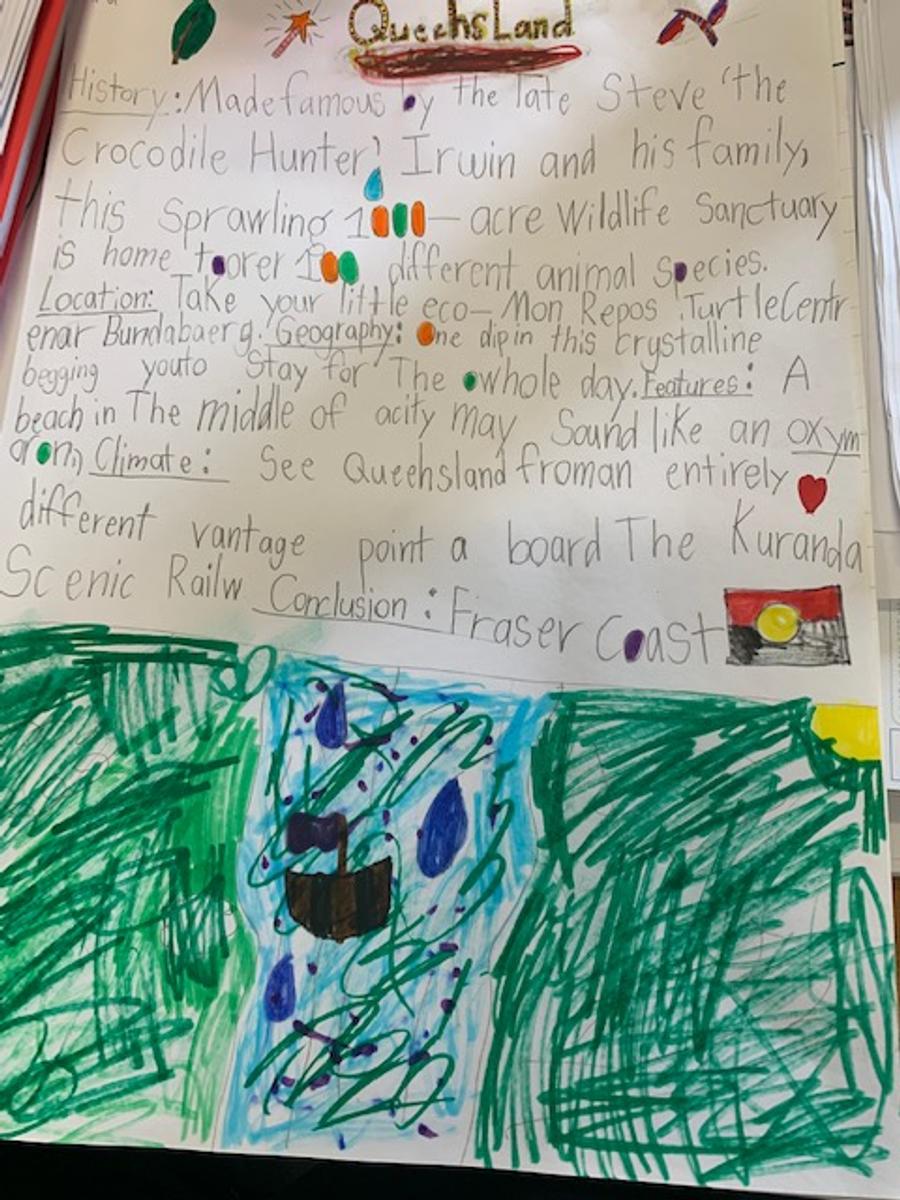 QueehsLand
History: Made famous by the late Steve 'the
Crocodile Hunter' Irwin and his family,
this Sprawling 1000- acre Wildlife Sanctuary
is home toorer 100 different animal species.
Location: Take your little eco- Mon Repos TurtleCentr
enar Bundabaerg. Geography: One dip in this crystalline
begging youto Stay for The owhole day. Features: A
beach in The middle of acity may Sound like an oxym
oron, Climate: See Queehsland froman entirely
different vantage point a board The Kuranda
Scenic Railw Conclusion: Fraser Coast